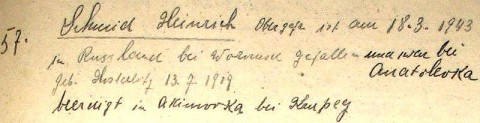 57. Schmid Heinrich Obergefr. ist am 18.3.1943
in Russland bei gefallen und zwar bei
geb. 13.7.1919 Anatolevka
beerdigt in Akimovka bei